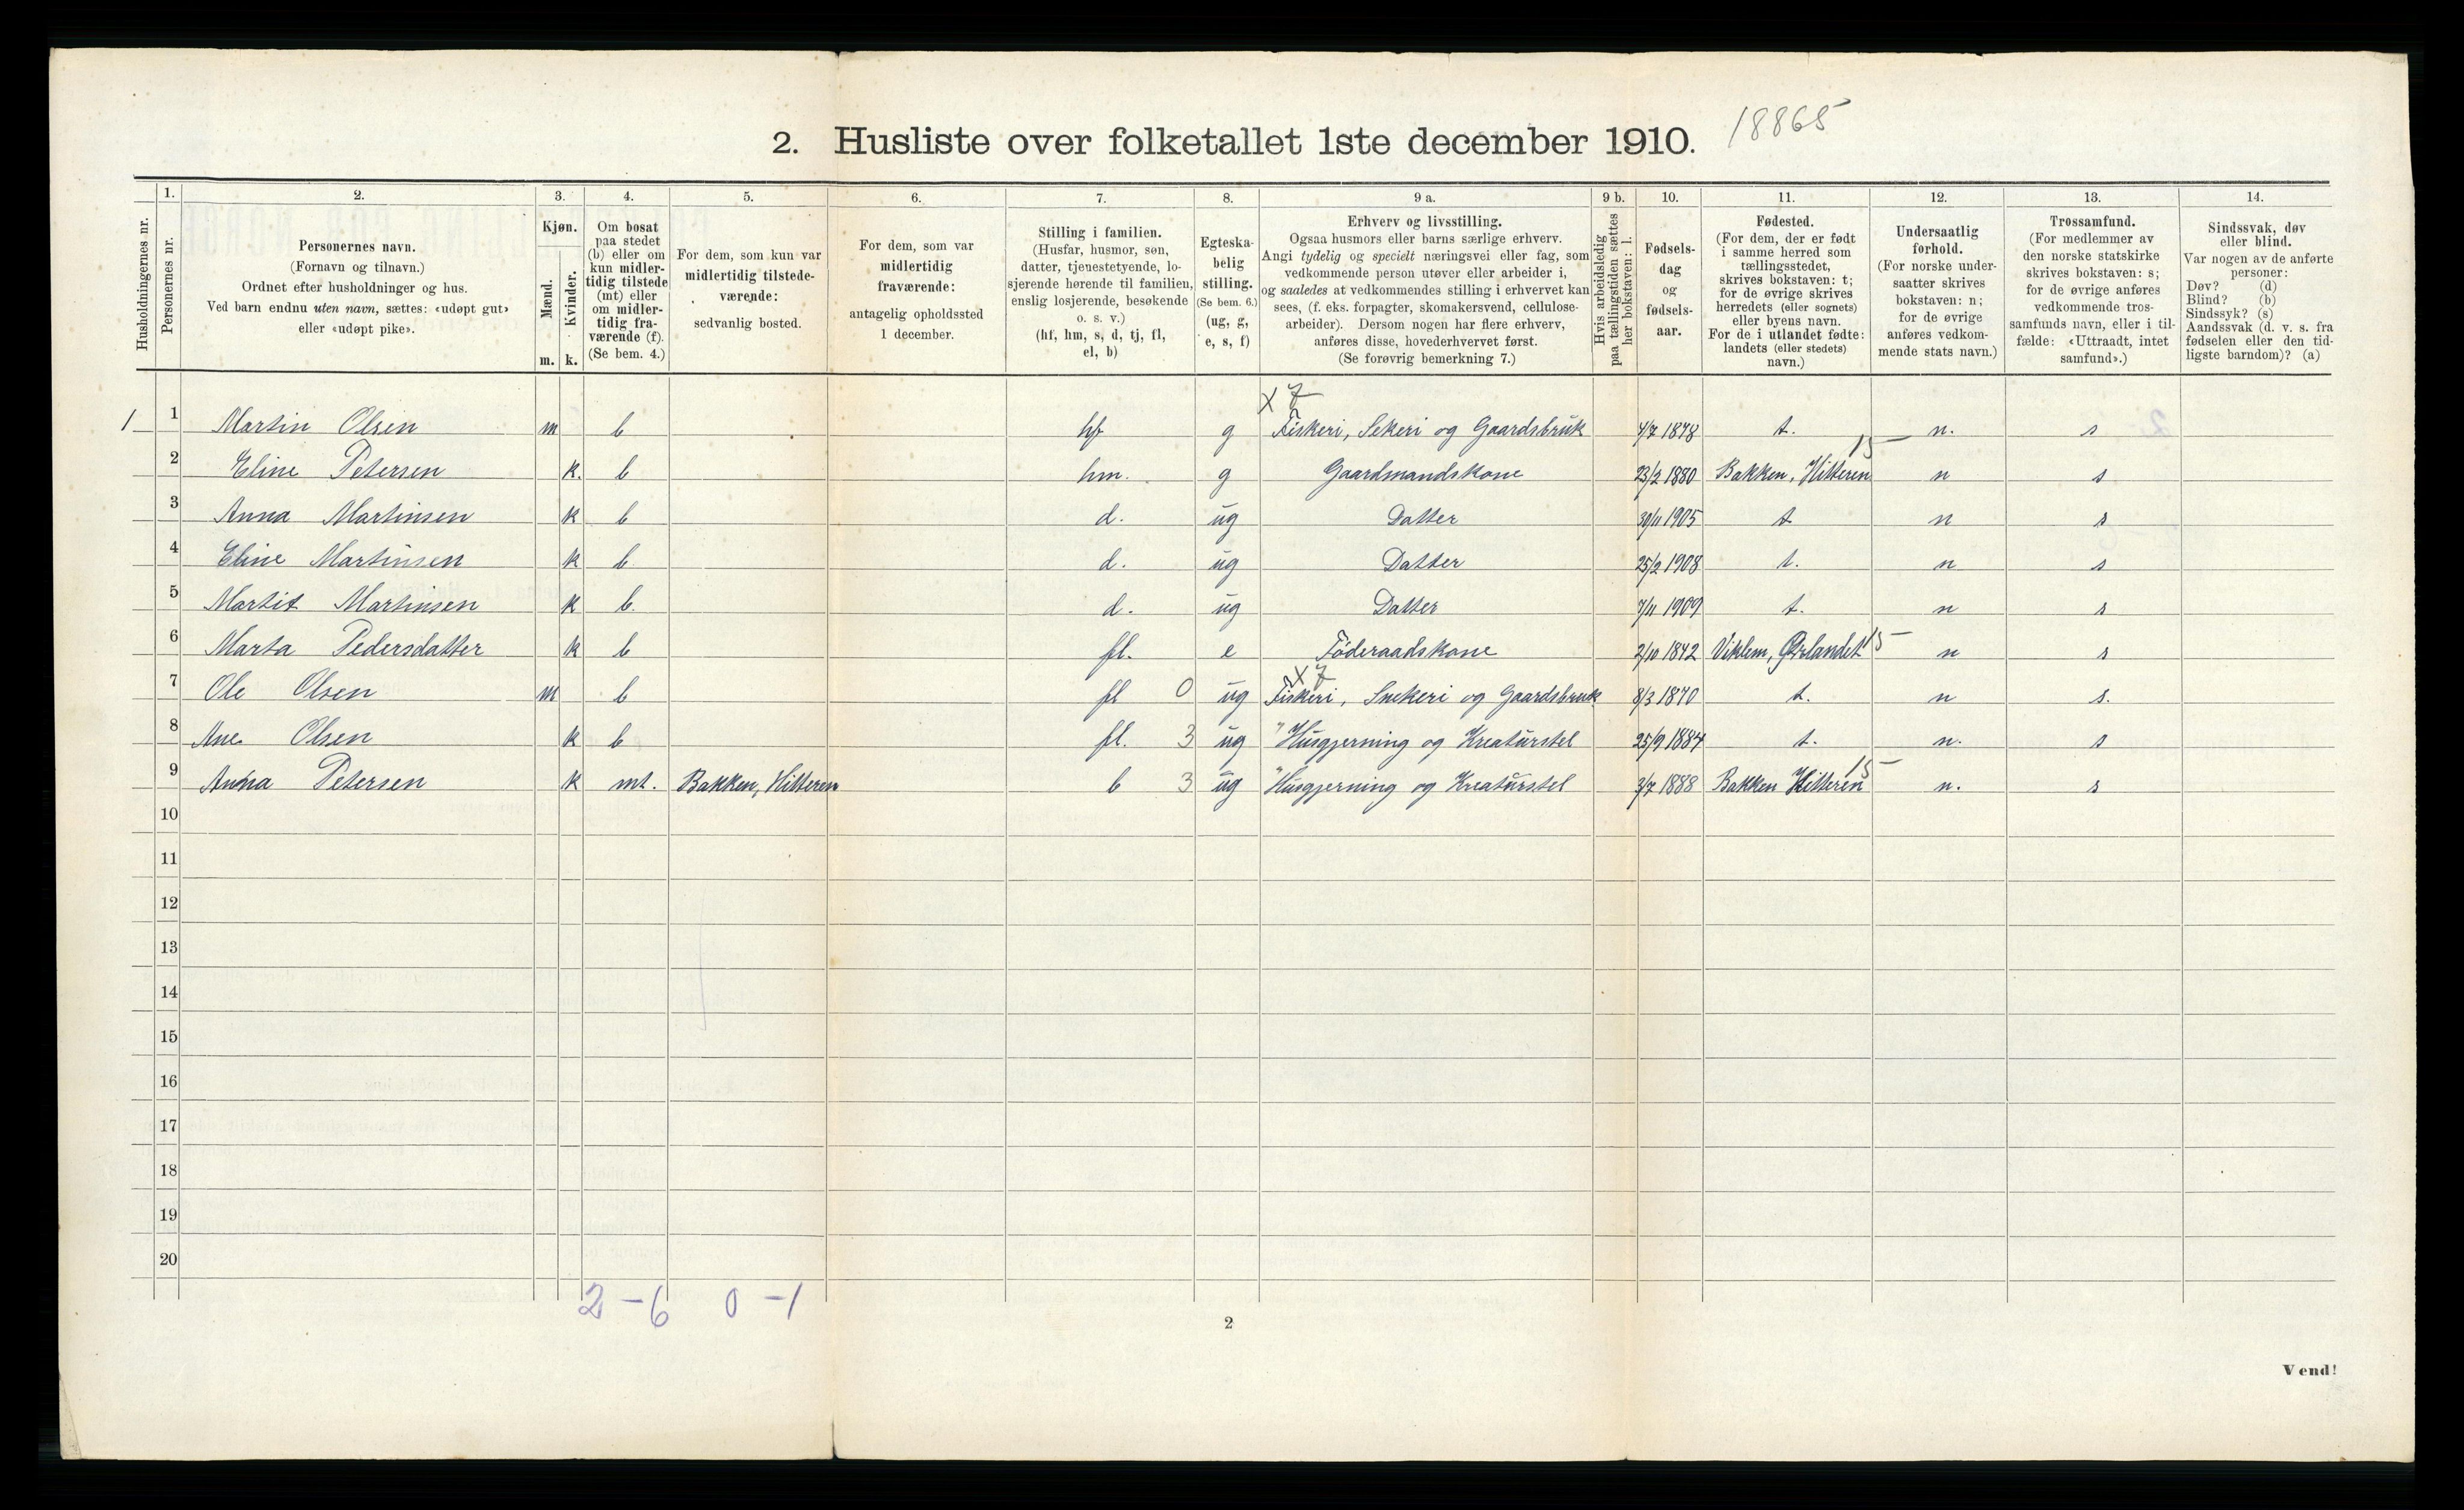 2. Husliste over folketallet 1ste december 1910. 18865
Husholdningernes nr.
1. Personernes nr.
2. Personernes navn. (Fornavn og tilnavn.) Ordnet efter husholdninger og hus. Ved barn endnu uten navn, sættes: «udøpt gut» eller «udøpt pike».
3. Kjøn. Mænd. m. Kvinder. k.
4. Om bosat paa stedet (b) eller om kun midlertidig tilstede (mt) eller om midlertidig fraværende (f). (Se bem. 4.)
5. For dem, som kun var midlertidig tilstedeværende: sedvanlig bosted.
6. For dem, som var midlertidig fraværende: antagelig opholdssted 1 december.
7. Stilling i familien. (Husfar, husmor, søn, datter, tjenestetyende, losjerende hørende til familien, enslig losjerende, besøkende o. s. v.) (hf, hm, s, d, tj, fl, el, b)
8. Egteskabelig stilling. (Se bem. 6.) (ug, g, e, s, f)
9 a. Erhverv og livsstilling. Ogsaa husmors eller barns særlige erhverv. Angi tydelig og specielt næringsvei eller fag, som vedkommende person utøver eller arbeider i, og saaledes at vedkommendes stilling i erhvervet kan sees, (f. eks. forpagter, skomakersvend, cellulosearbeider). Dersom nogen har flere erhverv, anføres disse, hovederhvervet først. (Se forøvrig bemerkning 7.)
9 b. Hvis arbeidsledig paa tællingstiden sættes her bokstaven: l.
10. Fødselsdag og fødselsaar.
11. Fødested. (For dem, der er født i samme herred som tællingsstedet, skrives bokstaven: t; for de øvrige skrives herredets (eller sognets) eller byens navn. For de i utlandet fødte: landets (eller stedets) navn.)
12. Undersaatlig forhold. (For norske undersaatter skrives bokstaven: n; for de øvrige anføres vedkommende stats navn.)
13. Trossamfund. (For medlemmer av den norske statskirke skrives bokstaven: s; for de øvrige anføres vedkommende trossamfunds navn, eller i tilfælde: «Uttraadt, intet samfund».)
14. Sindssvak, døv eller blind. Var nogen av de anførte personer: Døv? (d) Blind? (b) Sindssyk? (s) Aandssvak (d. v. s. fra fødselen eller den tidligste barndom)? (a)
x 7
1 1 Martin Olsen m b hf g Fiskeri, Sekeri og Gaardsbruk 4/7 1878 t. n. s
2 Eline Petersen k. b hm. g Gaardmandskone 23/2 1880 Bakken, Hitteren 15 n s
3 Anna Martinsen k b d. ug Datter 30/11 1905 t n s
4 Eline Martinsen k b d. ug Datter 25/2 1908 t. n s
5 Martit Martinsen k b. d. ug Datter 7/11 1909 t. n s
6 Marta Pedersdatter k b fl. e Føderaadskone 2/10 1842 Viklem, Ørlandet 15 n s
x 7
7 Ole Olsen m b fl 0 ug Fiskeri, Snekeri og Gaardsbruk 8/3 1870 t. n s.
8 Ane Olsen k b fl. 3 ug " Husgjerning og Kreaturstel 25/9 1884 t. n. s
9 Anna Petersen k mt. Bakken, Hitteren b 3 ug " Husgjerning og Kreaturstel 3/7 1888 Bakken Hitteren 15 n. s
10
11
12
13
14
15
16
17
18
19
20
2 - 6 0 - 1
2
Vend!